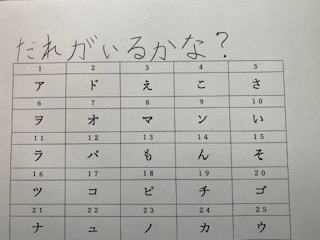 だれがいるかな？
1 2 3 4 5
ア ド え こ さ
6 7 8 9 10
ヲ オ マ ン い
11 12 13 14 15
ラ パ も ん そ
16 17 18 19 20
ツ コ ピ チ ゴ
21 22 23 24 25
ナ ュ ノ カ ウ